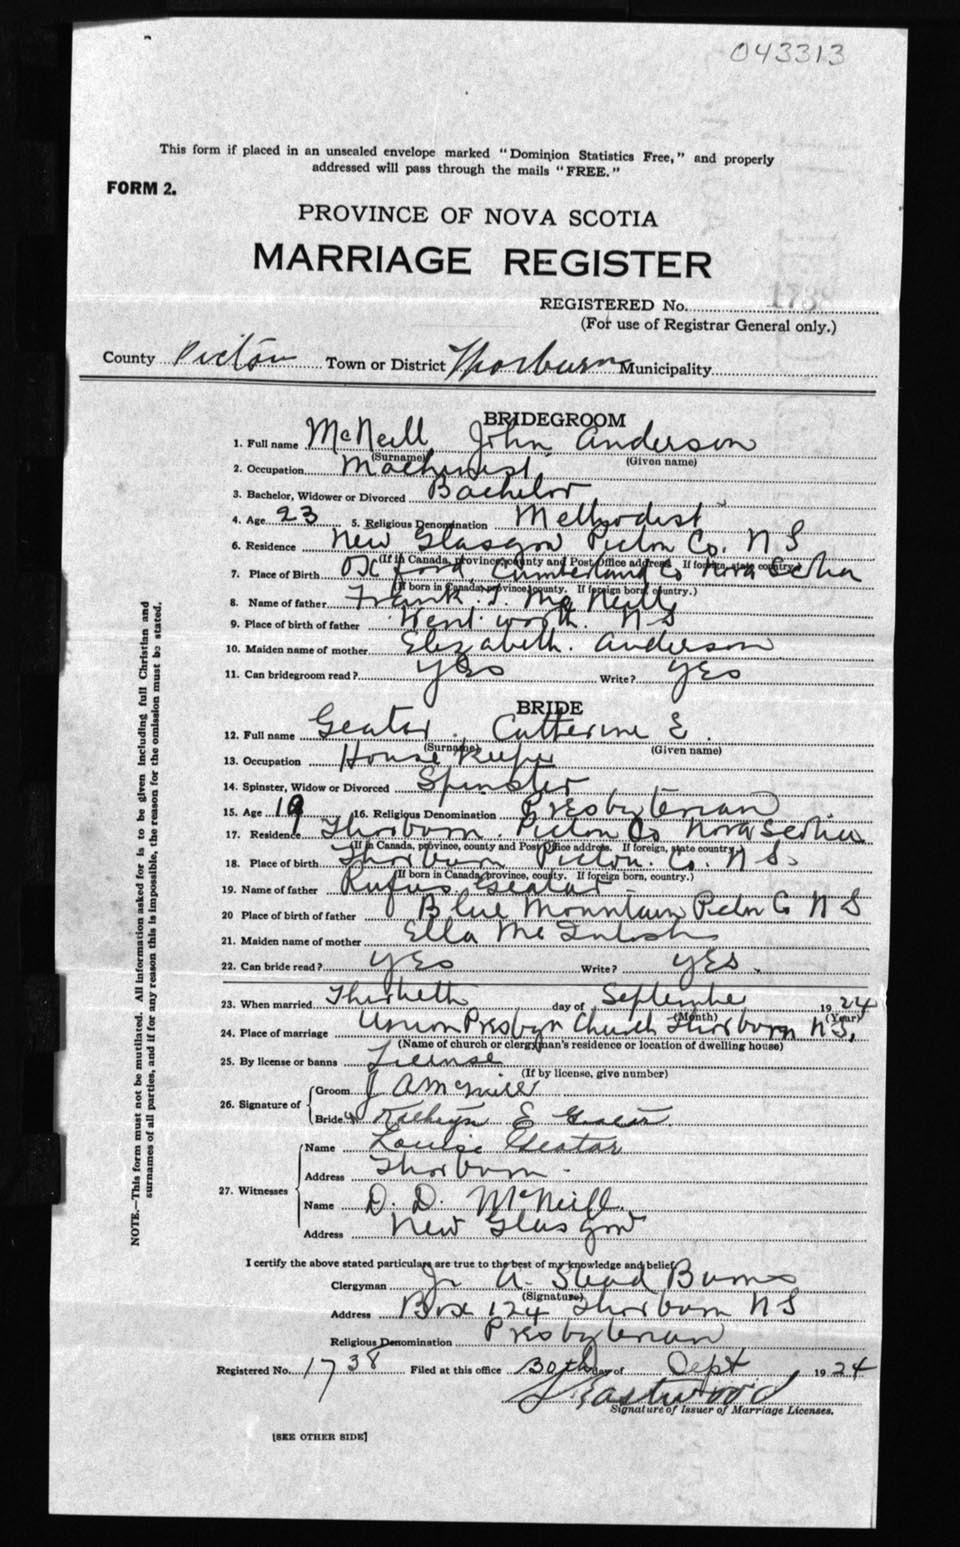 043313
This form if placed in an unsealed envelope marked "Dominion Statistics Free," and properly
addressed will pass through the mails "FREE."
FORM 2.
PROVINCE OF NOVA SCOTIA
MARRIAGE REGISTER
REGISTERED No. 1738
(For use of Registrar General only.)
County Pictou Town or District Thorburn Municipality
BRIDEGROOM
1. Full name McNeill John Anderson
(Surname) (Given name)
2. Occupation Machinist
3. Bachelor, Widower or Divorced Bachelor
4. Age 23 5. Religious Denomination Methodist
6. Residence New Glasgow Pictou Co. N S
(If in Canada, province, county and Post Office address. If foreign, state country.)
7. Place of Birth Oxford Cumberland Co Nova Scotia
(If born in Canada, province, county. If foreign born, country.)
8. Name of father Frank McNeill
9. Place of birth of father Wentworth. N S
10. Maiden name of mother Elizabeth. Anderson
11. Can bridegroom read? yes Write? yes
BRIDE
12. Full name Geatar. Catherine E.
(Surname) (Given name)
13. Occupation House Keeper
14. Spinster, Widow or Divorced Spinster
15. Age 19 16. Religious Denomination Presbyterian
17. Residence Thorburn. Pictou Co Nova Scotia
(If in Canada, province, county and Post Office address. If foreign, state country.)
18. Place of birth Thorburn Pictou. Co. N S.
(If born in Canada, province, county. If foreign born, country.)
19. Name of father Rufus Geatar
20 Place of birth of father Blue Mountain Pictou Co N S
21. Maiden name of mother Ella McIntosh
22. Can bride read? yes Write? yes.
23. When married Thirtieth day of September 1924
(Month) (Year)
24. Place of marriage Union Presbyn Church Thorburn N.S.
(Name of church or clergyman's residence or location of dwelling house)
25. By license or banns License
(If by license, give number)
26. Signature of Groom J A McNeill
Bride Kathryn E Geatar
27. Witnesses Name Louise Geatar
Address Thorburn
Name D. D. McNeill.
Address New Glasgow
I certify the above stated particulars are true to the best of my knowledge and belief.
Clergyman A. Stead Burns
(Signature)
Address Box 124 Thorburn N S
Religious Denomination Presbyterian
Registered No. 1738 Filed at this office 30th day of Sept 1924
Eastwood
Signature of Issuer of Marriage Licenses.
[SEE OTHER SIDE]
NOTE.—This form must not be mutilated. All information asked for is to be given including full Christian and
surnames of all parties, and if for any reason this is impossible, the reason for the omission must be stated.